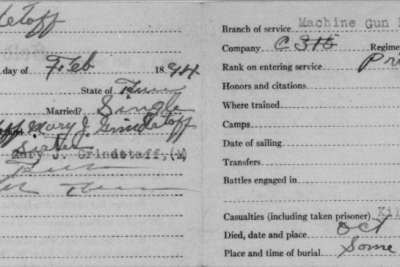 day of Feb 18.94
State of Tenn
Married? Single
Mary J. Grindstaff
Sister
Mary J. Grindstaff,(M)
Tenn
Branch of service Machine Gun
Company C 315 Regime
Rank on entering service Pri
Honors and citations
Where trained
Camps
Date of sailing
Transfers
Battles engaged in
Casualties (including taken prisoner) Kil
Died, date and place Oct
Place and time of burial Some